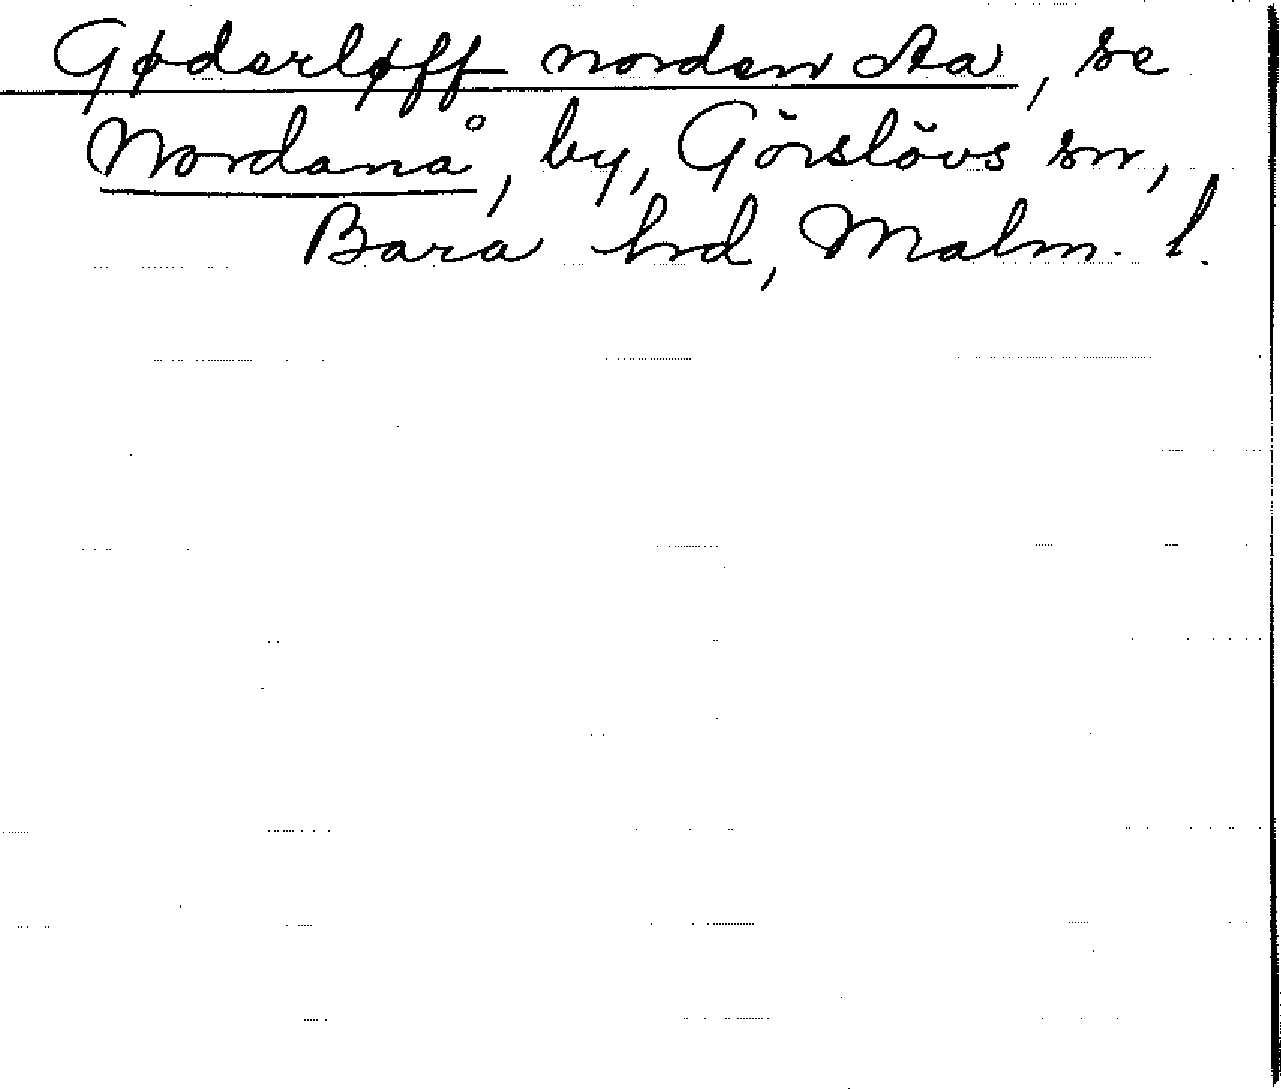 Gøderløff norden Aa, se
Nordanå, by, Görslövs sn,
Bara hd, Malm. l.